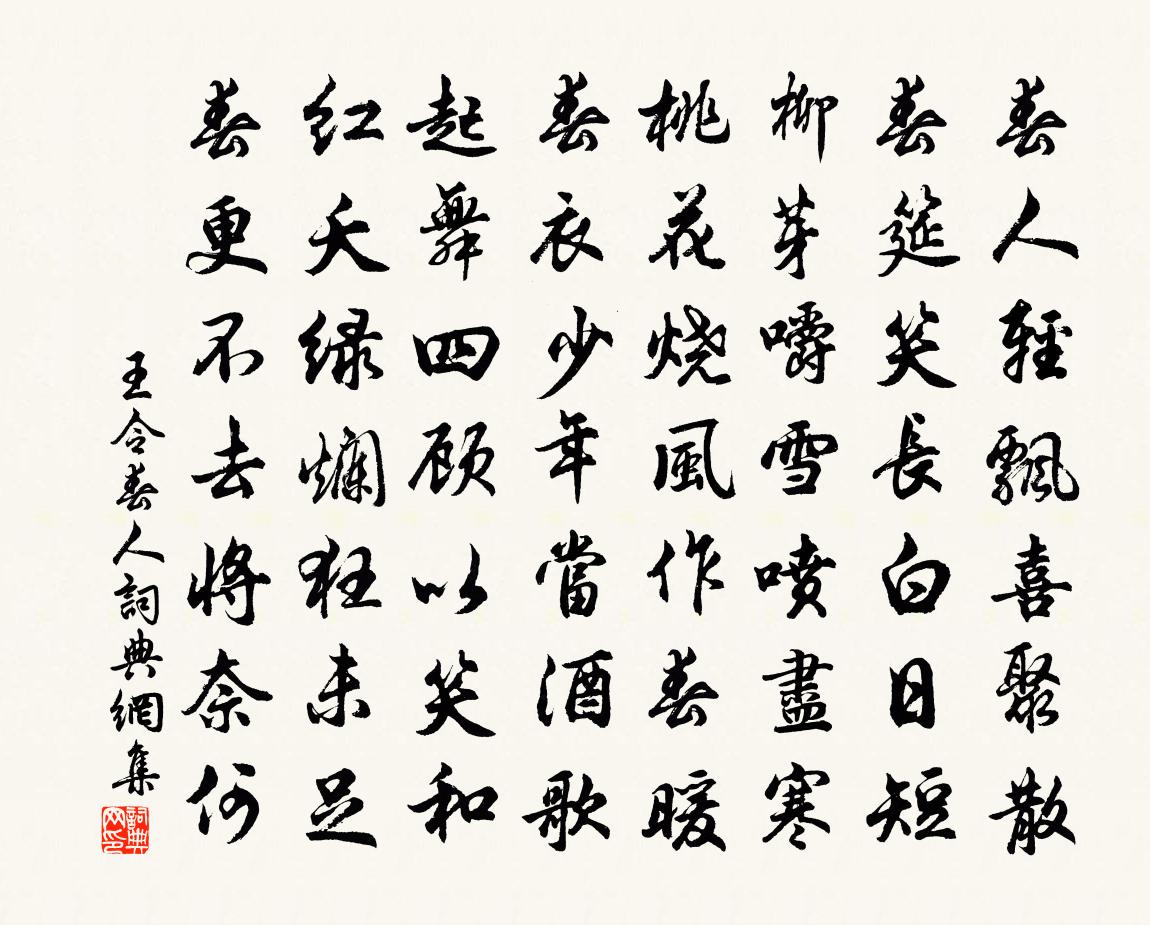 春人輕飄喜聚散
春筵笑長白日短
柳芽嚼雪噴盡寒
桃花烧風作春暖
春衣少年當酒歌
起舞四顾以笑和
红夭绿爛狂未足
春更不去將奈何
王令春人詞典網集
詞典网印